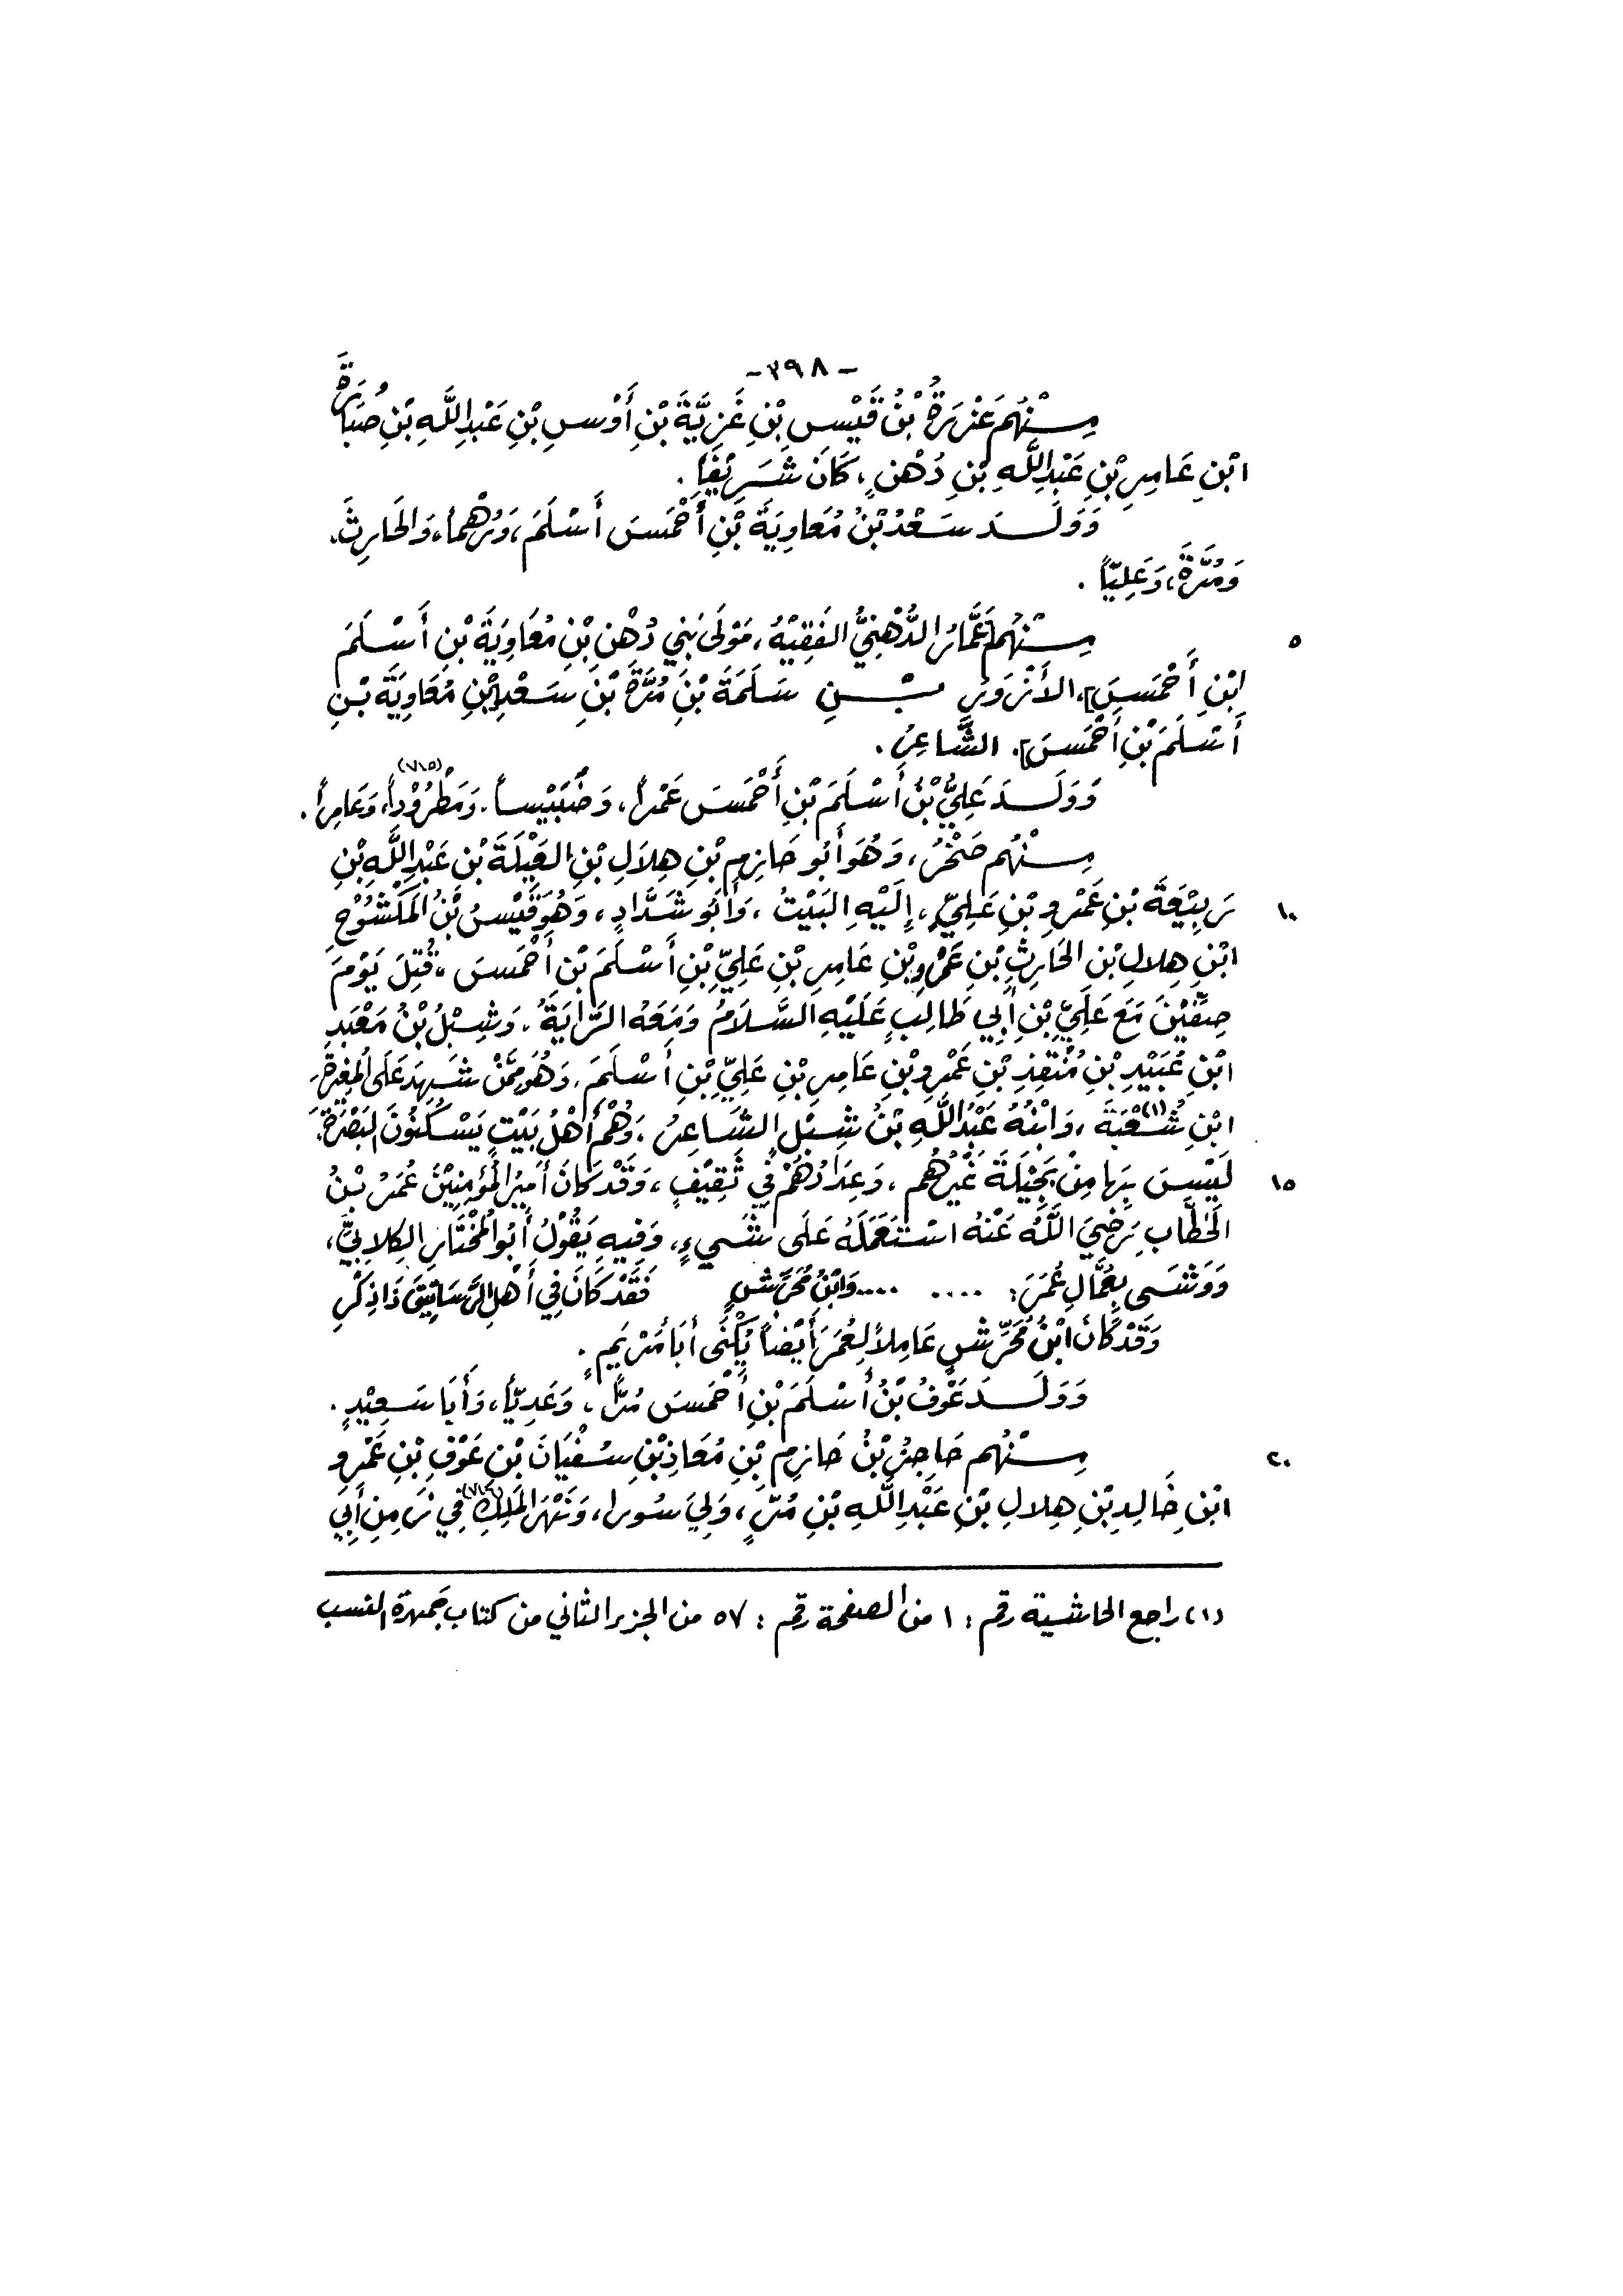 -٣٩٨-
مِنْهُم عَزْرَةُ بْنُ قَيْسِ بْنِ غَزِيَّةَ بْنِ أَوْسِ بْنِ عَبْدِ اللَّهِ بْنِ صُبَارَةَ
ابْنِ عَامِرِ بْنِ عَبْدِ اللَّهِ بْنِ دُهْنٍ، كَانَ شَرِيْفَاً.
وَوَلَدَ سَعْدُ بْنُ مُعَاوِيَةَ بْنِ أَحْمَسَ أَسْلَمَ، وَرُهْماً، وَالحَارِثَ،
وَمُرَّةَ، وَعَلِيّاً.
٥ مِنْهُم [عَمَّارُ الدُّهْنِيُّ الفَقِيْهُ، مَوْلَى بَنِي دُهْنِ بْنِ مُعَاوِيَةَ بْنِ أَسْلَمَ
ابْنِ أَحْمَسَ]، الأَزْوَرِ بْنِ سَلَمَةَ بْنِ مُرَّةَ بْنِ سَعْدِ [بْنِ مُعَاوِيَةَ بْنِ
أَسْلَمَ بْنِ أَحْمَسَ]. الشَّاعِرُ.
وَوَلَدَ عَلِيُّ بْنُ أَسْلَمَ بْنِ أَحْمَسَ عَمْراً، وَضُبَيْساً، وَمَطْرُوْداً(٧١٥)، وَعَامِراً.
مِنْهُم صَخْرُ، وَهُوَ أَبُو حَازِمِ بْنِ هِلَالِ بْنِ العَيْلَةَ بْنِ عَبْدِ اللَّهِ بْنِ
١٠ رَبِيْعَةَ بْنِ عَمْرِو بْنِ عَلِيٍّ، إِلَيْهِ البَيْتُ، وَأَبُو شَدَّادٍ، وَهُوَ قَيْسُ بْنُ المَكْشُوْحِ
ابْنِ هِلالِ بْنِ الحَارِثِ بْنِ عَمْرِو بْنِ عَامِرِ بْنِ عَلِيِّ بْنِ أَسْلَمَ بْنِ أَحْمَسَ، قُتِلَ يَوْمَ
صِفَّيْنَ مَعَ عَلِيِّ بْنِ أَبِي طَالِبٍ عَلَيْهِ السَّلَامُ وَمَعَهُ الرَّايَةُ. وَشِبْلُ بْنُ مَعْبَدِ
ابْنِ عُبَيْدِ بْنِ مُنْقِذِ بْنِ عَمْرِو بْنِ عَامِرِ بْنِ عَلِيِّ بْنِ أَسْلَمَ، وَهُوَ مِمَّنْ شَهِدَ عَلَى المُغِيْرَةِ
ابْنِ شُعْبَةَ(١)، وَابْنُهُ عَبْدُ اللَّهِ بْنُ شِبْلٍ الشَّاعِرُ، وَهُمْ أَهْلُ بَيْتٍ يَسْكُنُوْنَ البَصْرَةَ،
١٥ لَيْسَ بِهَا مِنْ بَجِيْلَةَ غَيْرُهُم، وَعِدَادُهُمْ فِي ثَقِيْفٍ، وَقَدْ كَانَ أَمِيْرُ المُؤْمِنِيْنَ عُمَرُ بْنُ
الخَطَّابِ رَضِيَ اللَّهُ عَنْهُ اسْتَعْمَلَهُ عَلَى شَيءٍ، وَفِيهِ يَقُوْلُ أَبُو المُخْتَارِ الكِلابِيُّ،
وَوَشَى بِعُمَّالِ عُمَرَ: .... ....وَابْنَ مُحَرَّشٍ فَقَدْ كَانَ فِي أَهْلِ الرَّسَاتِيقِ ذَا ذِكْرِ
وَقَدْ كَانَ ابْنُ مُحَرِّشٍ عَامِلاً لِعُمَرَ أَيْضاً يُكْنَى أَبَا مَرْيَمٍ.
وَوَلَدَ عَوْفُ بْنُ أَسْلَمَ بْنِ أَحْمَسَ مُرّاً، وَعَدِيّاً، وَأَبَا سَعِيْدٍ.
٢٠ مِنْهُم حَاجِزُ بْنُ حَازِمِ بْنِ مُعَاذِ بْنِ سُفْيَانَ بْنِ عَوْفِ بْنِ عَمْرِو
ابْنِ خَالِدِ بْنِ هِلالِ بْنِ عَبْدِ اللَّهِ بْنِ مُرٍّ، وَلِيَ سُورا، وَنَهْرَ المَلِكِ(٧١٦) فِي زَمِنِ أَبِي
(١) راجع الحاشية رقم: ١ من الصفحة رقم: ٥٧ من الجزء الثاني من كتاب جمهرة النسب